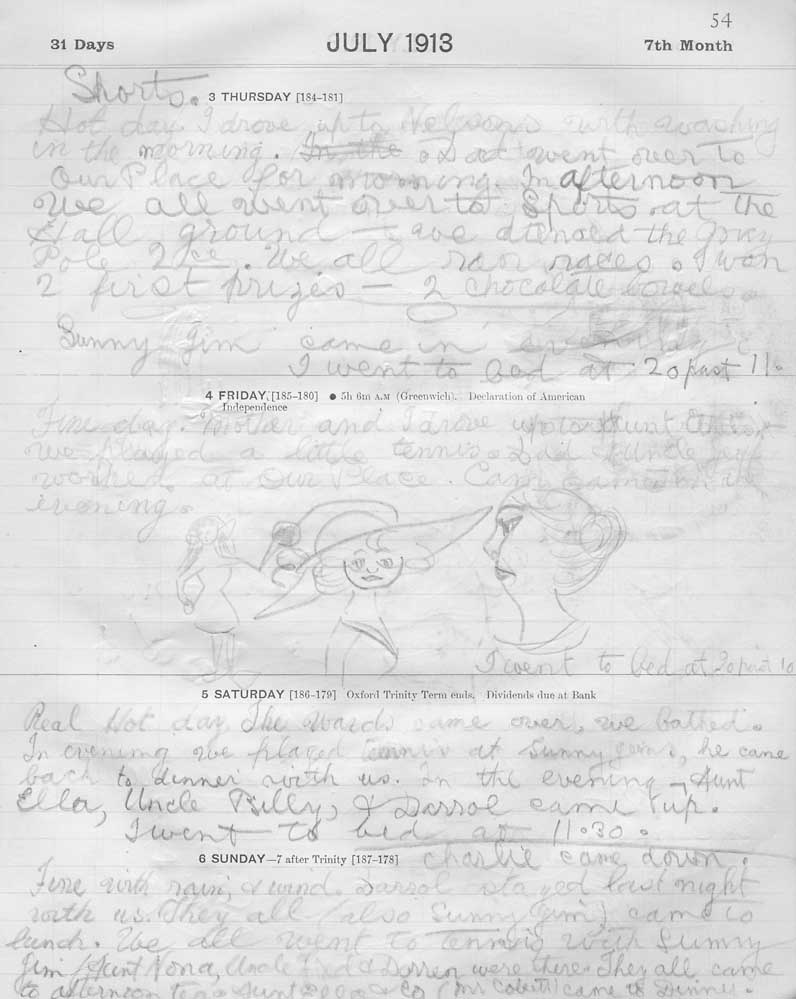 54
31 Days JULY 1913 7th Month
3 THURSDAY [184-181]
Hot day. I drove up to Nelsons with washing
in the morning. In the & Dad went over to
Our Place for morning. In afternoon
we all went over to Sports at the
Hall ground — we the
Pole. We all ran races. I won
2 first prizes — 2 chocolate
Sunny Jim came in
I went to bed at 20 past 11.
4 FRIDAY, [185-180] ● 5h 6m A.M (Greenwich). Declaration of American
Independence
Fine day. Mother and I drove up to Aunt
we played a little tennis. Dad & Uncle
worked at Our Place. came in the
evening.
I went to bed at 20 past 10
5 SATURDAY [186-179] Oxford Trinity Term ends. Dividends due at Bank
Real Hot day. The Wards came over, we bathed.
In evening we played tennis at Sunny Jims, he came
back to dinner with us. In the evening Aunt
Ella, Uncle Billy, & Darrol came up.
I went to bed at 11.30.
6 SUNDAY—7 after Trinity [187-178] Charlie came down.
Fine with rain, & wind. Darrol stayed last night
with us. They all (also Sunny Jim) came to
lunch. We all went to tennis with Sunny
Jim, Aunt Nona, Uncle & were there. They all came
to afternoon tea. Aunt Ella & Co came to Dinner.